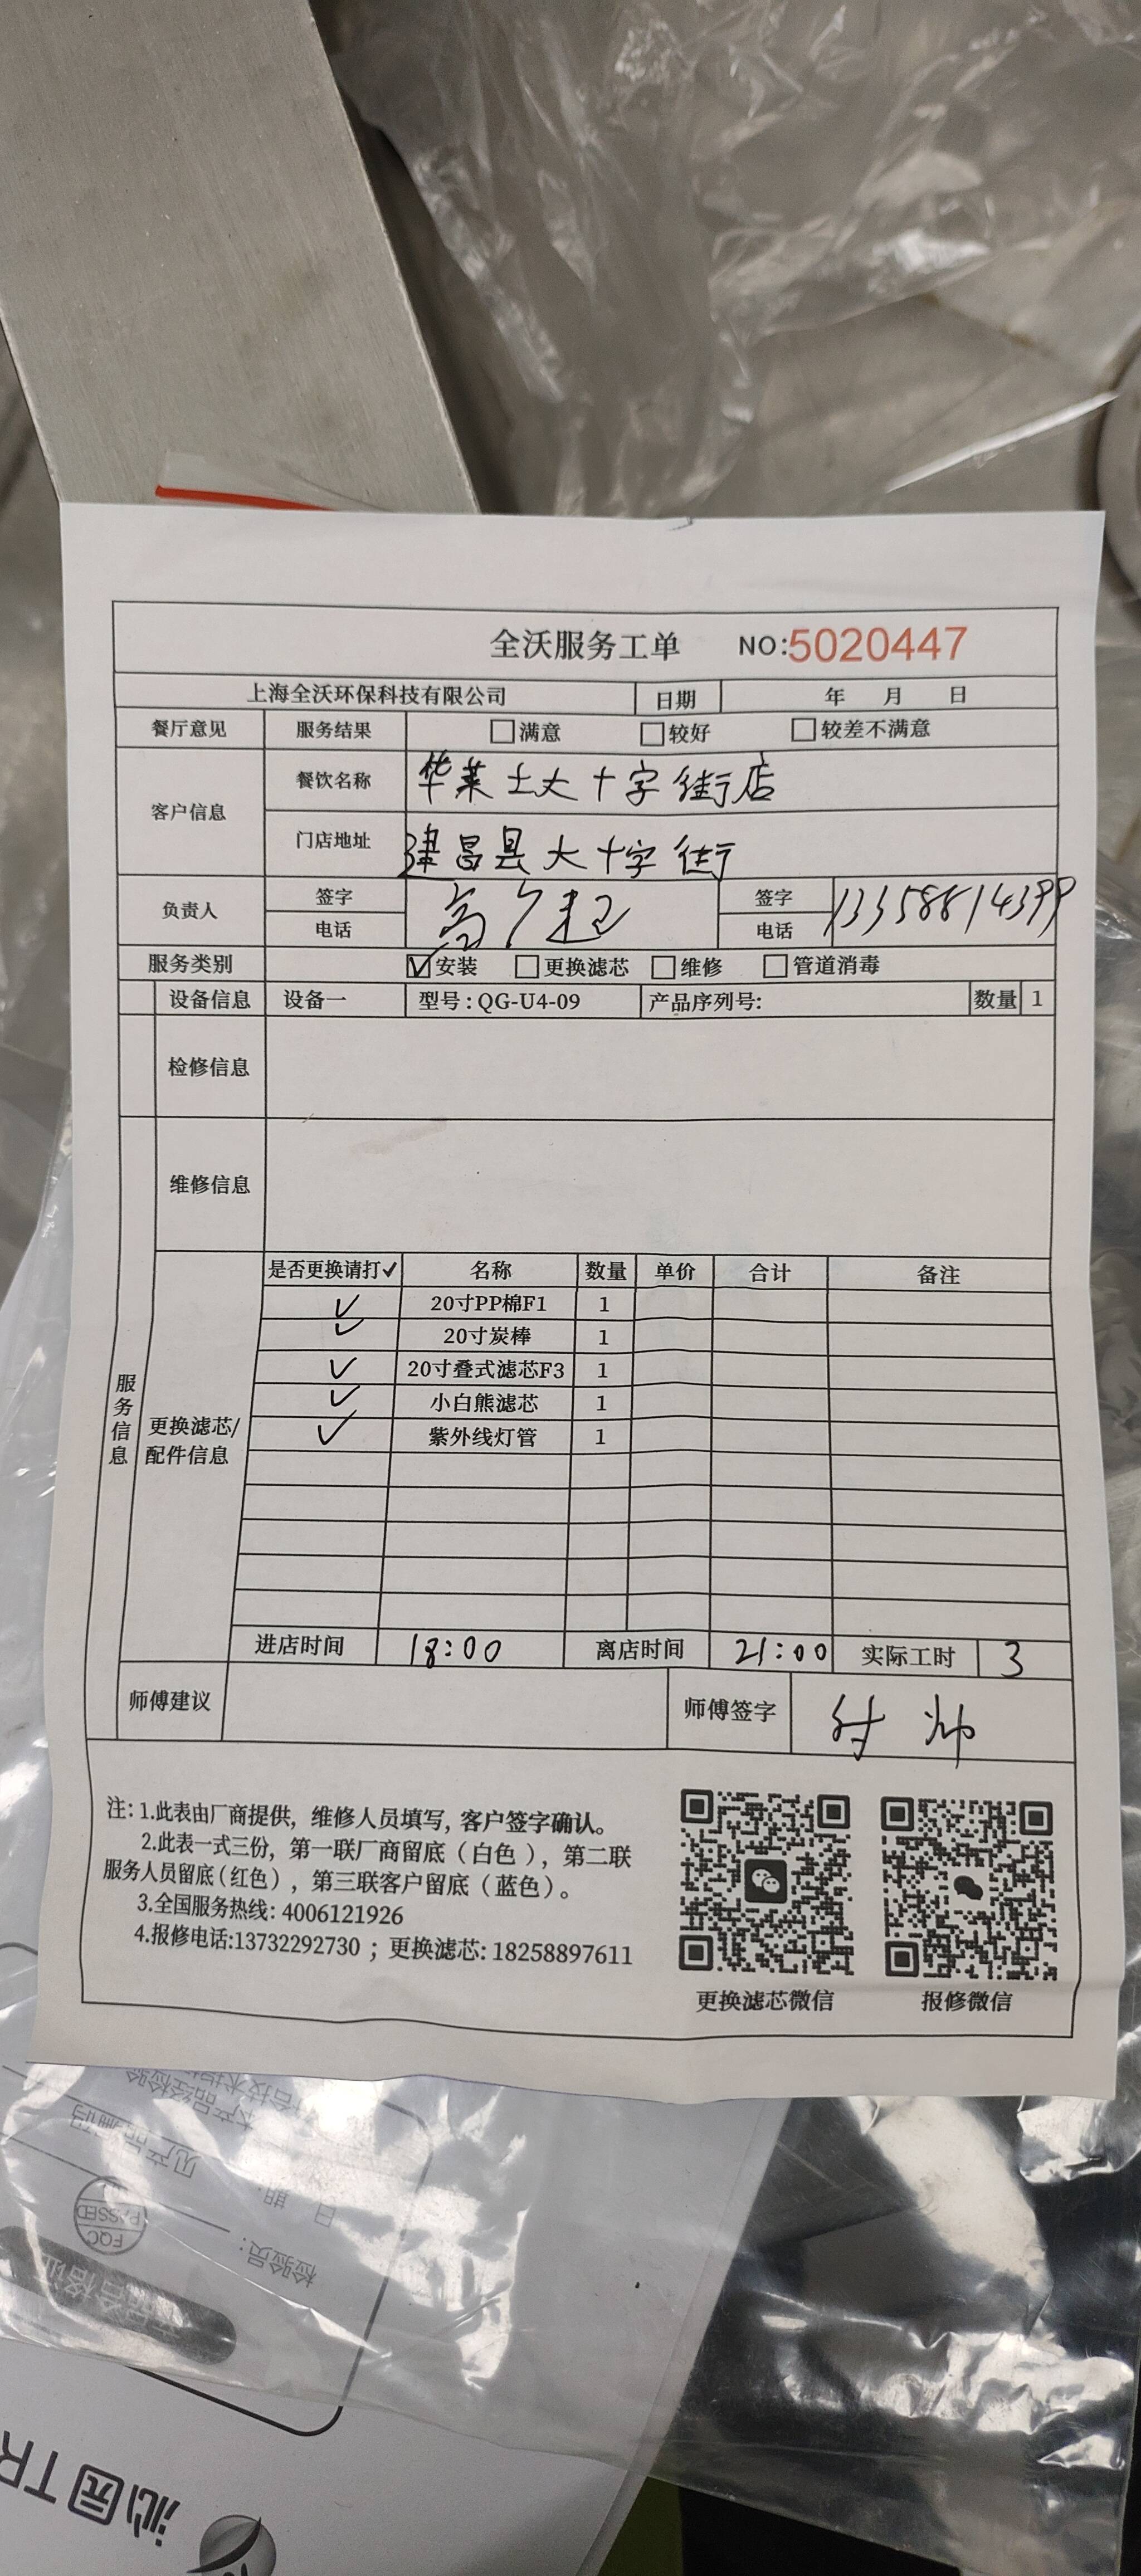 全沃服务工单 NO:5020447
上海全沃环保科技有限公司 日期 年 月 日
餐厅意见 服务结果 □满意 □较好 □较差不满意
客户信息 餐饮名称 华莱士大十字街店
门店地址 建昌县大十字街
负责人 签字 签字
电话 高 电话 13358814399
服务类别 ☑安装 □更换滤芯 □维修 □管道消毒
设备信息 设备一 型号:QG-U4-09 产品序列号: 数量 1
检修信息
维修信息
服务信息
更换滤芯/配件信息
是否更换请打✓ 名称 数量 单价 合计 备注
✓ 20寸PP棉F1 1
✓ 20寸炭棒 1
✓ 20寸叠式滤芯F3 1
✓ 小白熊滤芯 1
✓ 紫外线灯管 1
进店时间 18:00 离店时间 21:00 实际工时 3
师傅建议 师傅签字 付帅
注: 1.此表由厂商提供，维修人员填写，客户签字确认。
2.此表一式三份，第一联厂商留底（白色），第二联
服务人员留底（红色），第三联客户留底（蓝色）。
3.全国服务热线: 4006121926
4.报修电话:13732292730 ；更换滤芯: 18258897611
更换滤芯微信 报修微信
见产品
日 期:
检验员:
FQC
PASSED
沁园TR